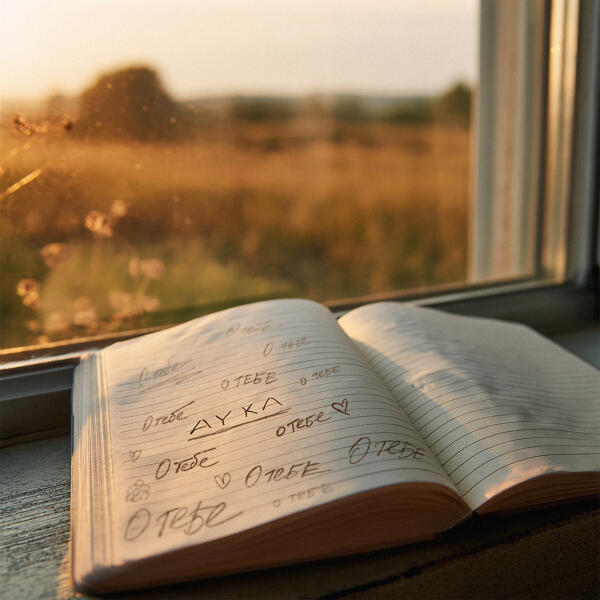 О тебе
О тебе
О тебе
О ТЕБЕ
О ТЕБЕ
О тебе
АУКА
О ТЕБЕ
О тебе
О ТЕБЕ
О ТЕБЕ
О тебе
О ТЕБЕ